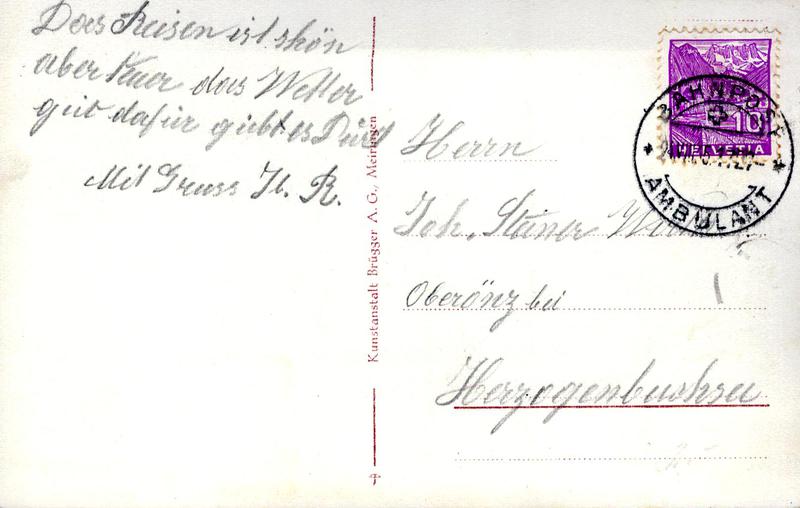 Das Reisen ist schön
aber das Wetter
gut dafür giebt es Durst
Mit Gruss Ib. R.
Kunstanstalt Brügger A. G., Meiringen
BAHNPOST
AMBULANT
10
HELVETIA
Herrn
Joh. Steiner
Oberönz bei
Herzogenbuchsee